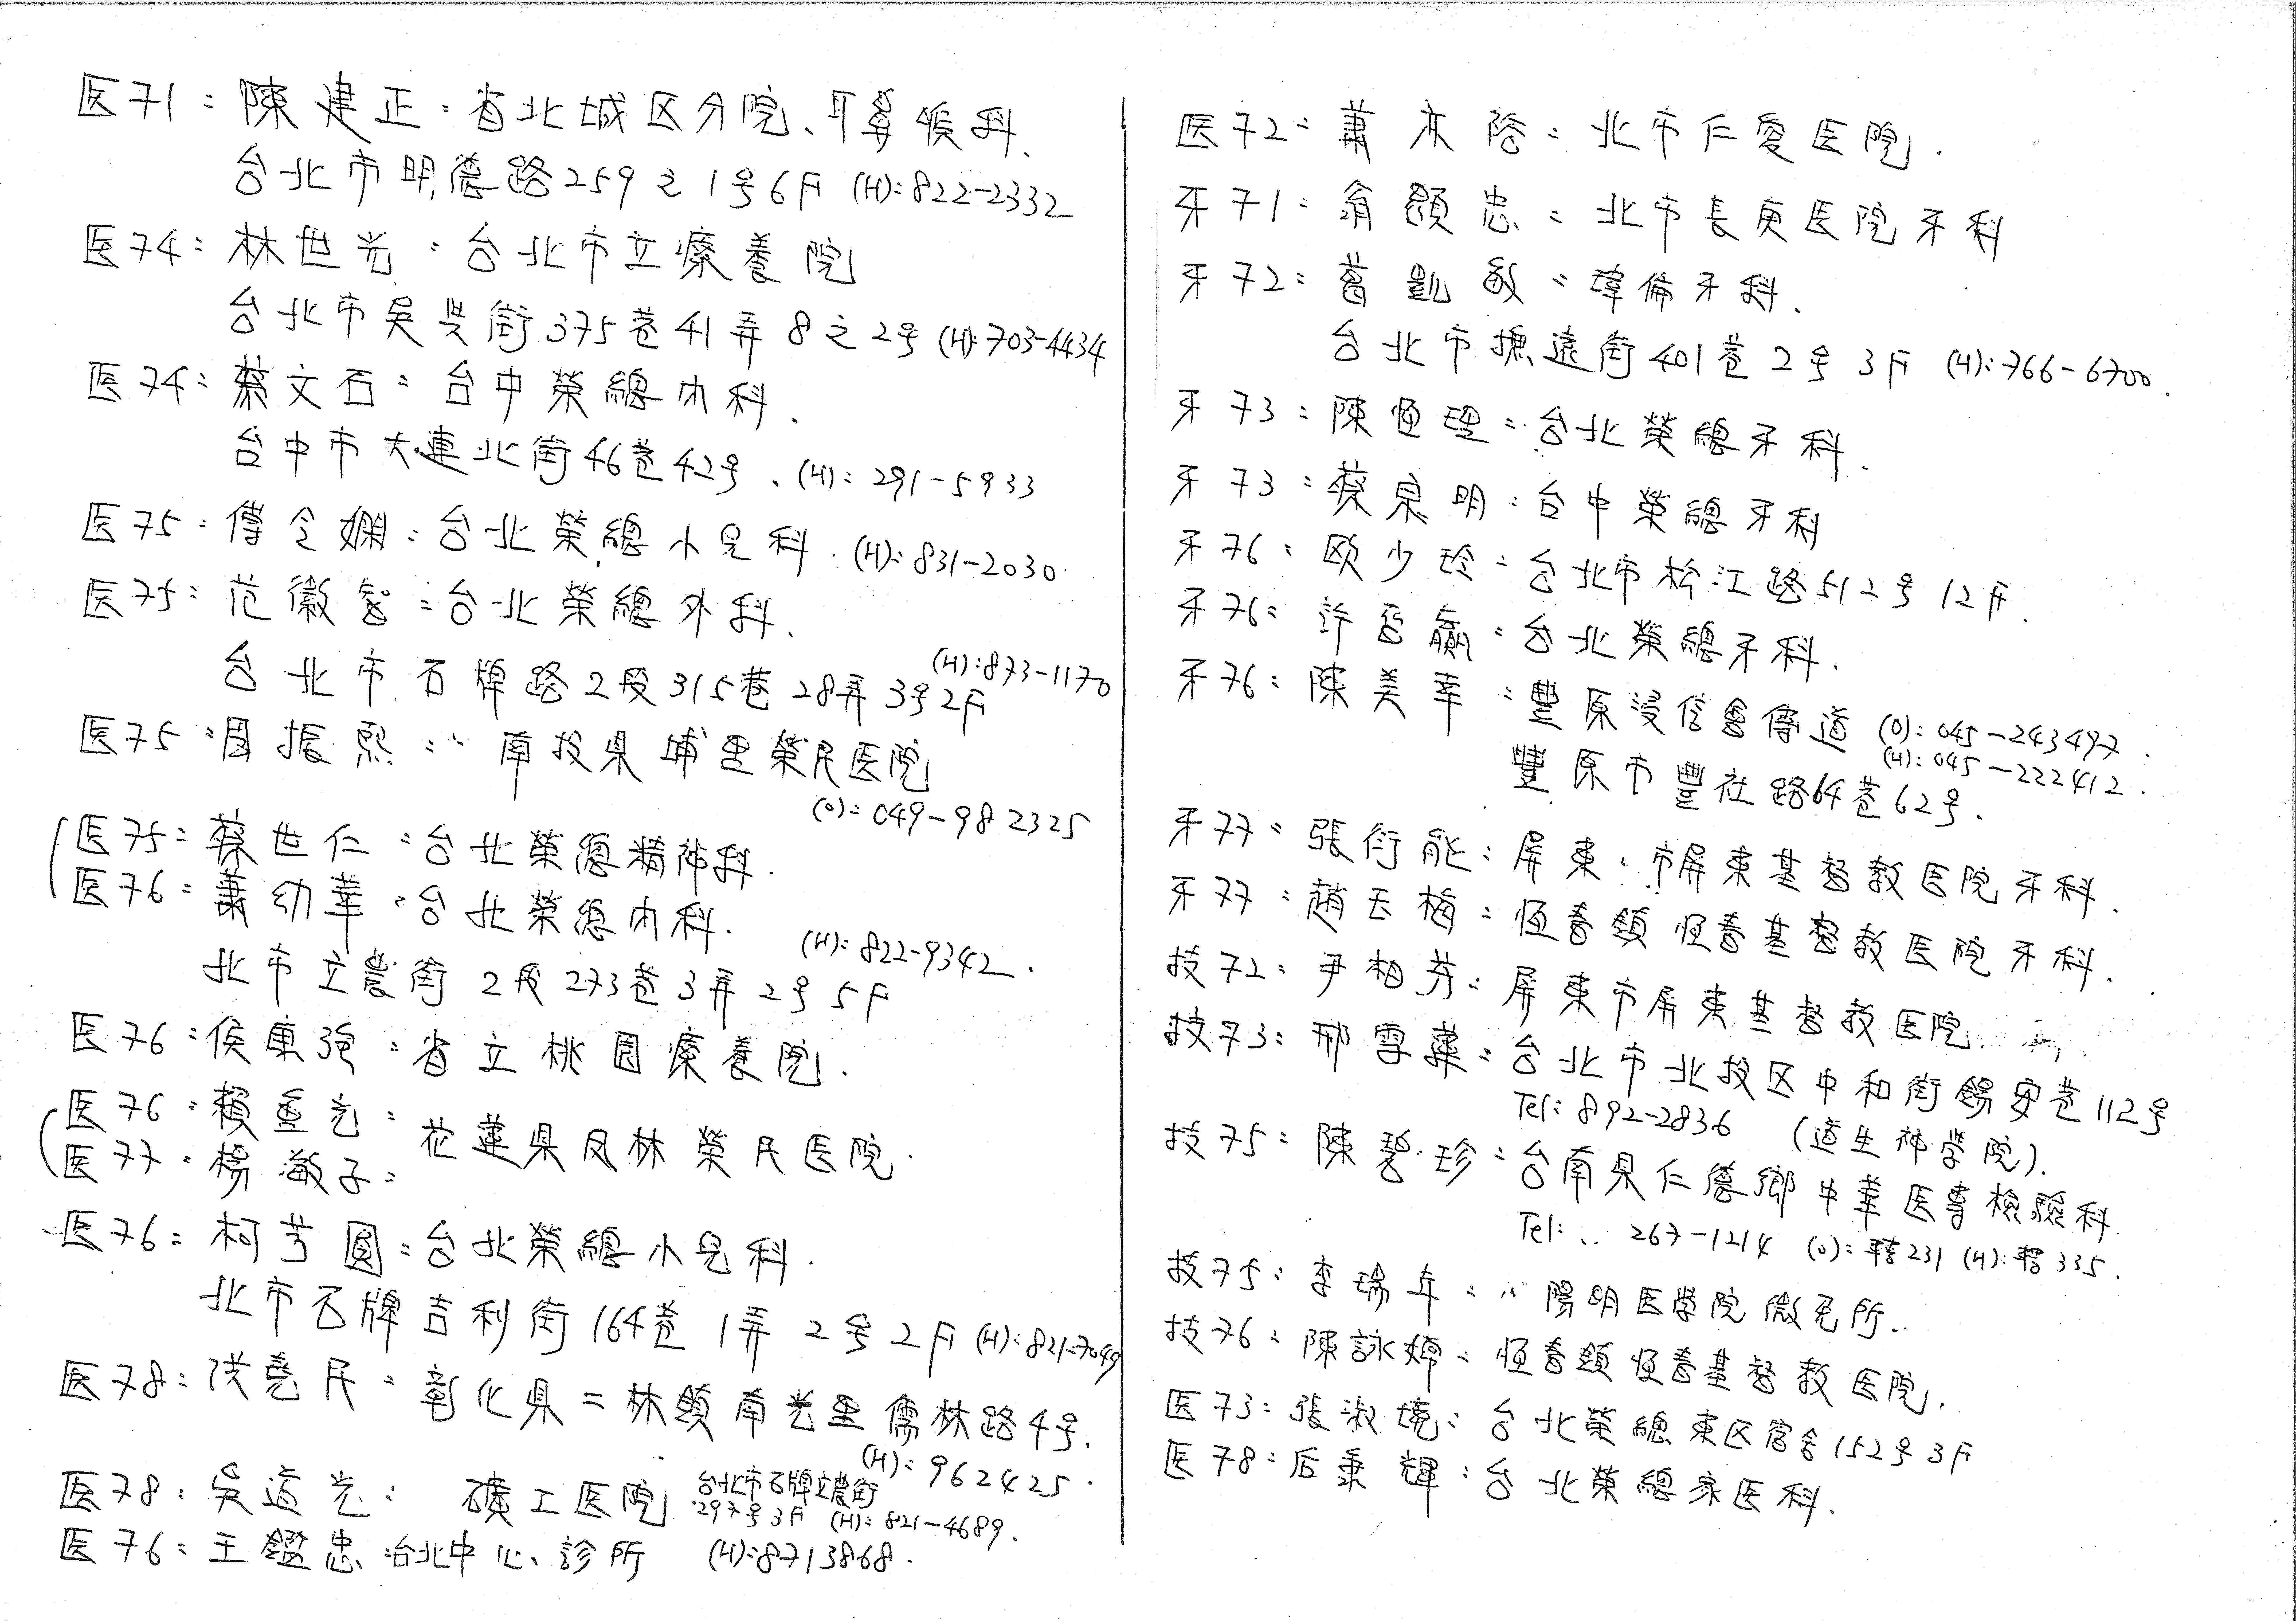 医71：陳建正：省北城区分院、耳鼻喉科.
台北市明德路259之1号6F (H):822-2332
医74：林世光：台北市立療養院
台北市吳興街375巷41弄8之2号 (H):703-4434
医74：蔡文石：台中榮總內科.
台中市大連北街46巷42号. (H): 291-5933
医75：傅令嫻：台北榮總小兒科. (H): 831-2030.
医75：范徽智：台北榮總外科.
(H):873-1170
台北市石牌路2段315巷28弄3号2F
医75：周振熙：南投県埔里榮民医院
(O): 049-982325
医75：蔡世仁：台北榮總精神科.
医76：蕭幼華：台北榮總內科.
(H): 822-9342.
北市立農街2段273巷3弄2号5F
医76：侯康強：省立桃園療養院.
医76：賴 ：花蓮県凤林榮民医院.
医77：楊淑子：
医76：柯芳圓：台北榮總小兒科.
北市石牌吉利街164巷1弄2号2F (H):821-7049
医78：洪堯民：彰化県二林鎮南光里儒林路4号.
(H): 962425.
医78：吳道光： 礦工医院 台北市石牌立農街
297号3F (H): 821-4689.
医76：王鑑忠：台北中心診所 (H):8713868.
医72：蕭 ：北市仁愛医院.
牙71：翁顯忠：北市長庚医院牙科
牙72：葛凱敏：瑋倫牙科.
台北市撫遠街401巷2号3F (H):766-6700.
牙73：陳恒理：台北榮總牙科.
牙73：蔡泉明：台中榮總牙科
牙76：欧少玲：台北市松江路512号12F.
牙76：許 ：台北榮總牙科.
牙76：陳美幸：豐原浸信會傳道 (O): 045-243497.
(H): 045-222412.
豐原市豐社路64巷62号.
牙77：張衍能：屏東市屏東基督教医院牙科.
牙77：趙玉梅：恒春鎮恒春基督教医院牙科.
技72：尹柏芬：屏東市屏東基督教医院.
技73：邢雪 ：台北市北投区中和街錫安巷112号
Tel: 892-2836 (道生神学院).
技75：陳碧珍：台南県仁德鄉中華医專檢驗科.
Tel: 267-1214 (O): 轉231 (H): 轉335.
技75：李瑞年：陽明医学院微免所.
技76：陳詠婷：恒春鎮恒春基督教医院.
医73：張淑境：台北榮總東区宿舍152号3F
医78：后秉輝：台北榮總家医科.